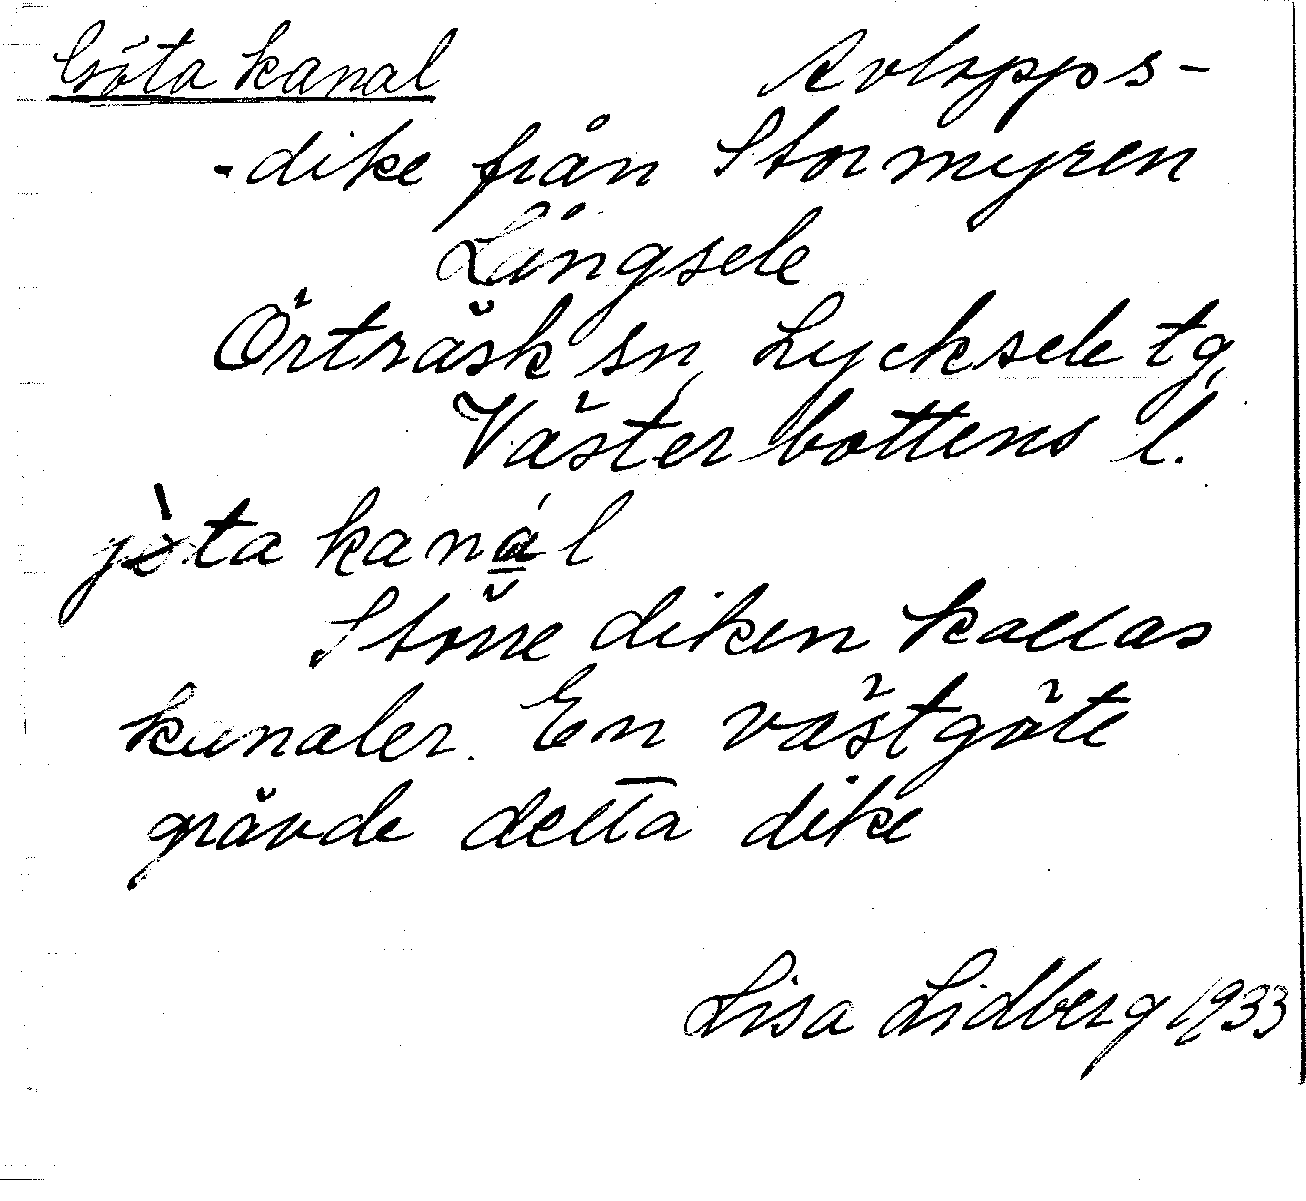 Göta kanal Avlopps-
-dike från Stormyren
Långsele
Örträsk sn, Lycksele tg,
Västerbottens l.
jò̀ta kaná̲l
Större diken kallas
kanaler. En västgöte
grävde detta dike
Lisa Lidberg 1933